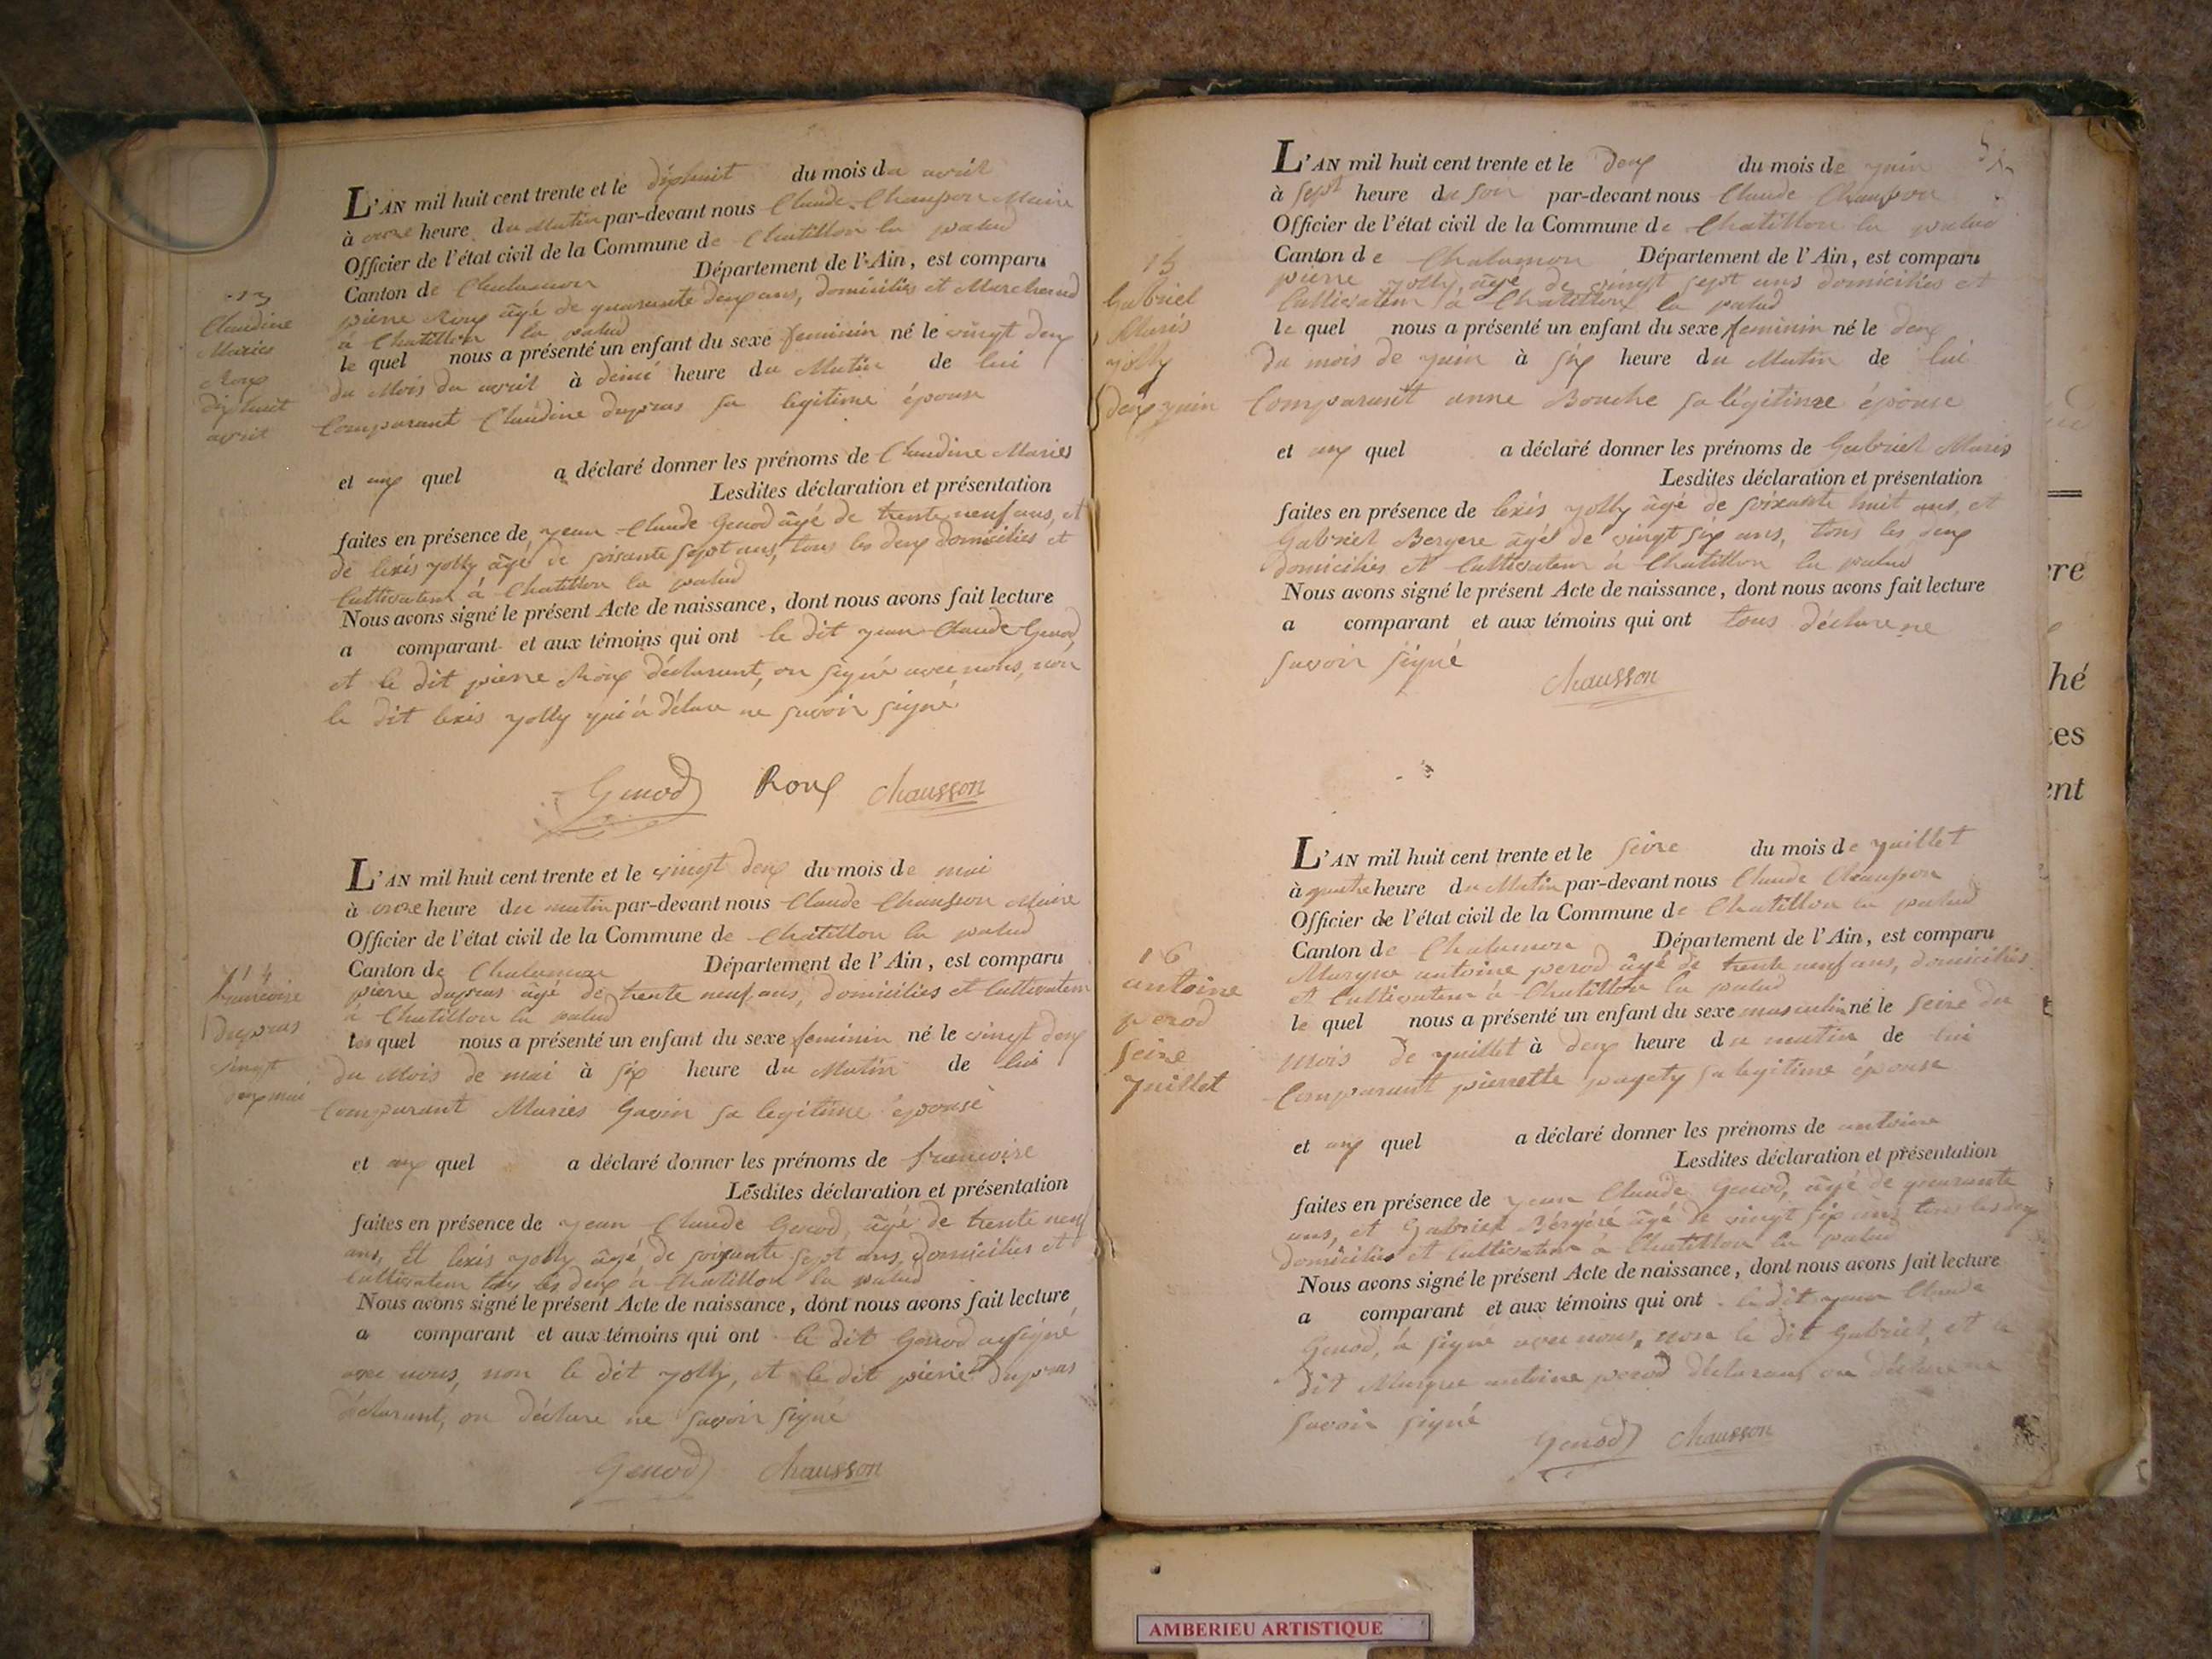 13
Claudine
Maries
Roux
dixhuit
avril
L'AN mil huit cent trente et le dixhuit du mois du avril
à onze heure du Matin par-devant nous Claude Chausson Maire
Officier de l'état civil de la Commune de Chatillon la palud
Canton de Chalamon Département de l'Ain, est comparu
pierre Roux âgé de quarante deux ans, domiciliés et Marchand
à Chatillon la palud
le quel nous a présenté un enfant du sexe feminin né le vingt deux
du Mois du avril à demi heure du Matin de lui
Comparant Claudine dupras sa legitime épouse
et aux quel a déclaré donner les prénoms de Claudine Maries
Lesdites déclaration et présentation
faites en présence de jean Claude Genod âgé de trente neuf ans, et
de lexis jolly âgé de soixante sept ans, tous les deux domiciliés et
Cultivateur à Chatillon la palud
Nous avons signé le présent Acte de naissance, dont nous avons fait lecture
a comparant et aux témoins qui ont le dit jean Claude Genod
et le dit pierre Roux déclarant, on signé avec nous, non
le dit lexis jolly qui à déclare ne savoir signé
Genod Roux Chausson
14
francoise
Dupras
vingt
deux mai
L'AN mil huit cent trente et le vingt deux du mois de mai
à onze heure du matin par-devant nous Claude Chausson Maire
Officier de l'état civil de la Commune de Chatillon la palud
Canton de Chalamon Département de l'Ain, est comparu
pierre dupras âgé de trente neuf ans, domiciliés et Cultivateur
à Chatillon la palud
le quel nous a présenté un enfant du sexe feminin né le vingt deux
du Mois de mai à six heure du Matin de lui
Comparant Maries Gavin sa legitime épouse
et aux quel a déclaré donner les prénoms de francoise
Lesdites déclaration et présentation
faites en présence de jean Claude Genod, âgé de trente neuf
ans, et lexis jolly âgé de soixante sept ans, domiciliés et
Cultivateur tous les deux à Chatillon la palud
Nous avons signé le présent Acte de naissance, dont nous avons fait lecture
a comparant et aux témoins qui ont le dit Genod a signé
avec nous, non le dit jolly, et le dit pierre Dupras
déclarant, on déclare ne savoir signé
Genod Chausson
15
Gabriel
Maris
jolly
deux juin
L'AN mil huit cent trente et le deux du mois de juin
à sept heure du soir par-devant nous Claude Chausson
Officier de l'état civil de la Commune de Chatillon la palud
Canton de Chalamon Département de l'Ain, est comparu
pierre jolly, âgé de vingt sept ans domiciliés et
Cultivateur à Chatillon la palud
le quel nous a présenté un enfant du sexe feminin né le deux
du mois de juin à six heure du Matin de lui
Comparant anne Bouche sa légitime épouse
et aux quel a déclaré donner les prénoms de Gabriel Maris
Lesdites déclaration et présentation
faites en présence de lexis jolly âgé de soixante huit ans, et
Gabriel Bergere âgé de vingt six ans, tous les deux
domiciliés et Cultivateur à Chatillon la palud
Nous avons signé le présent Acte de naissance, dont nous avons fait lecture
a comparant et aux témoins qui ont tous déclare ne
savoir signé
Chausson
16
antoine
perod
seize
juillet
L'AN mil huit cent trente et le seize du mois de juillet
à quatre heure du Matin par-devant nous Claude Chausson
Officier de l'état civil de la Commune de Chatillon la palud
Canton de Chalamon Département de l'Ain, est comparu
antoine perod âgé de trente neuf ans, domiciliés
et Cultivateur à Chatillon la palud
le quel nous a présenté un enfant du sexe masculin né le seize du
mois de juillet à deux heure du matin de lui
Comparant pierrette sa legitime épouse
et aux quel a déclaré donner les prénoms de antoine
Lesdites déclaration et présentation
faites en présence de jean Claude Genod, âgé de quarante
ans, et Gabriel Bergéré âgé de vingt six ans tous les deux
domiciliés et Cultivateur à Chatillon la palud
Nous avons signé le présent Acte de naissance, dont nous avons fait lecture
a comparant et aux témoins qui ont le dit jean Claude
Genod, à signé avec nous, non le dit Gabriel, et le
dit antoine perod déclarant on déclare ne
savoir signé
Genod Chausson
ere
hé
tes
ent
AMBERIEU ARTISTIQUE